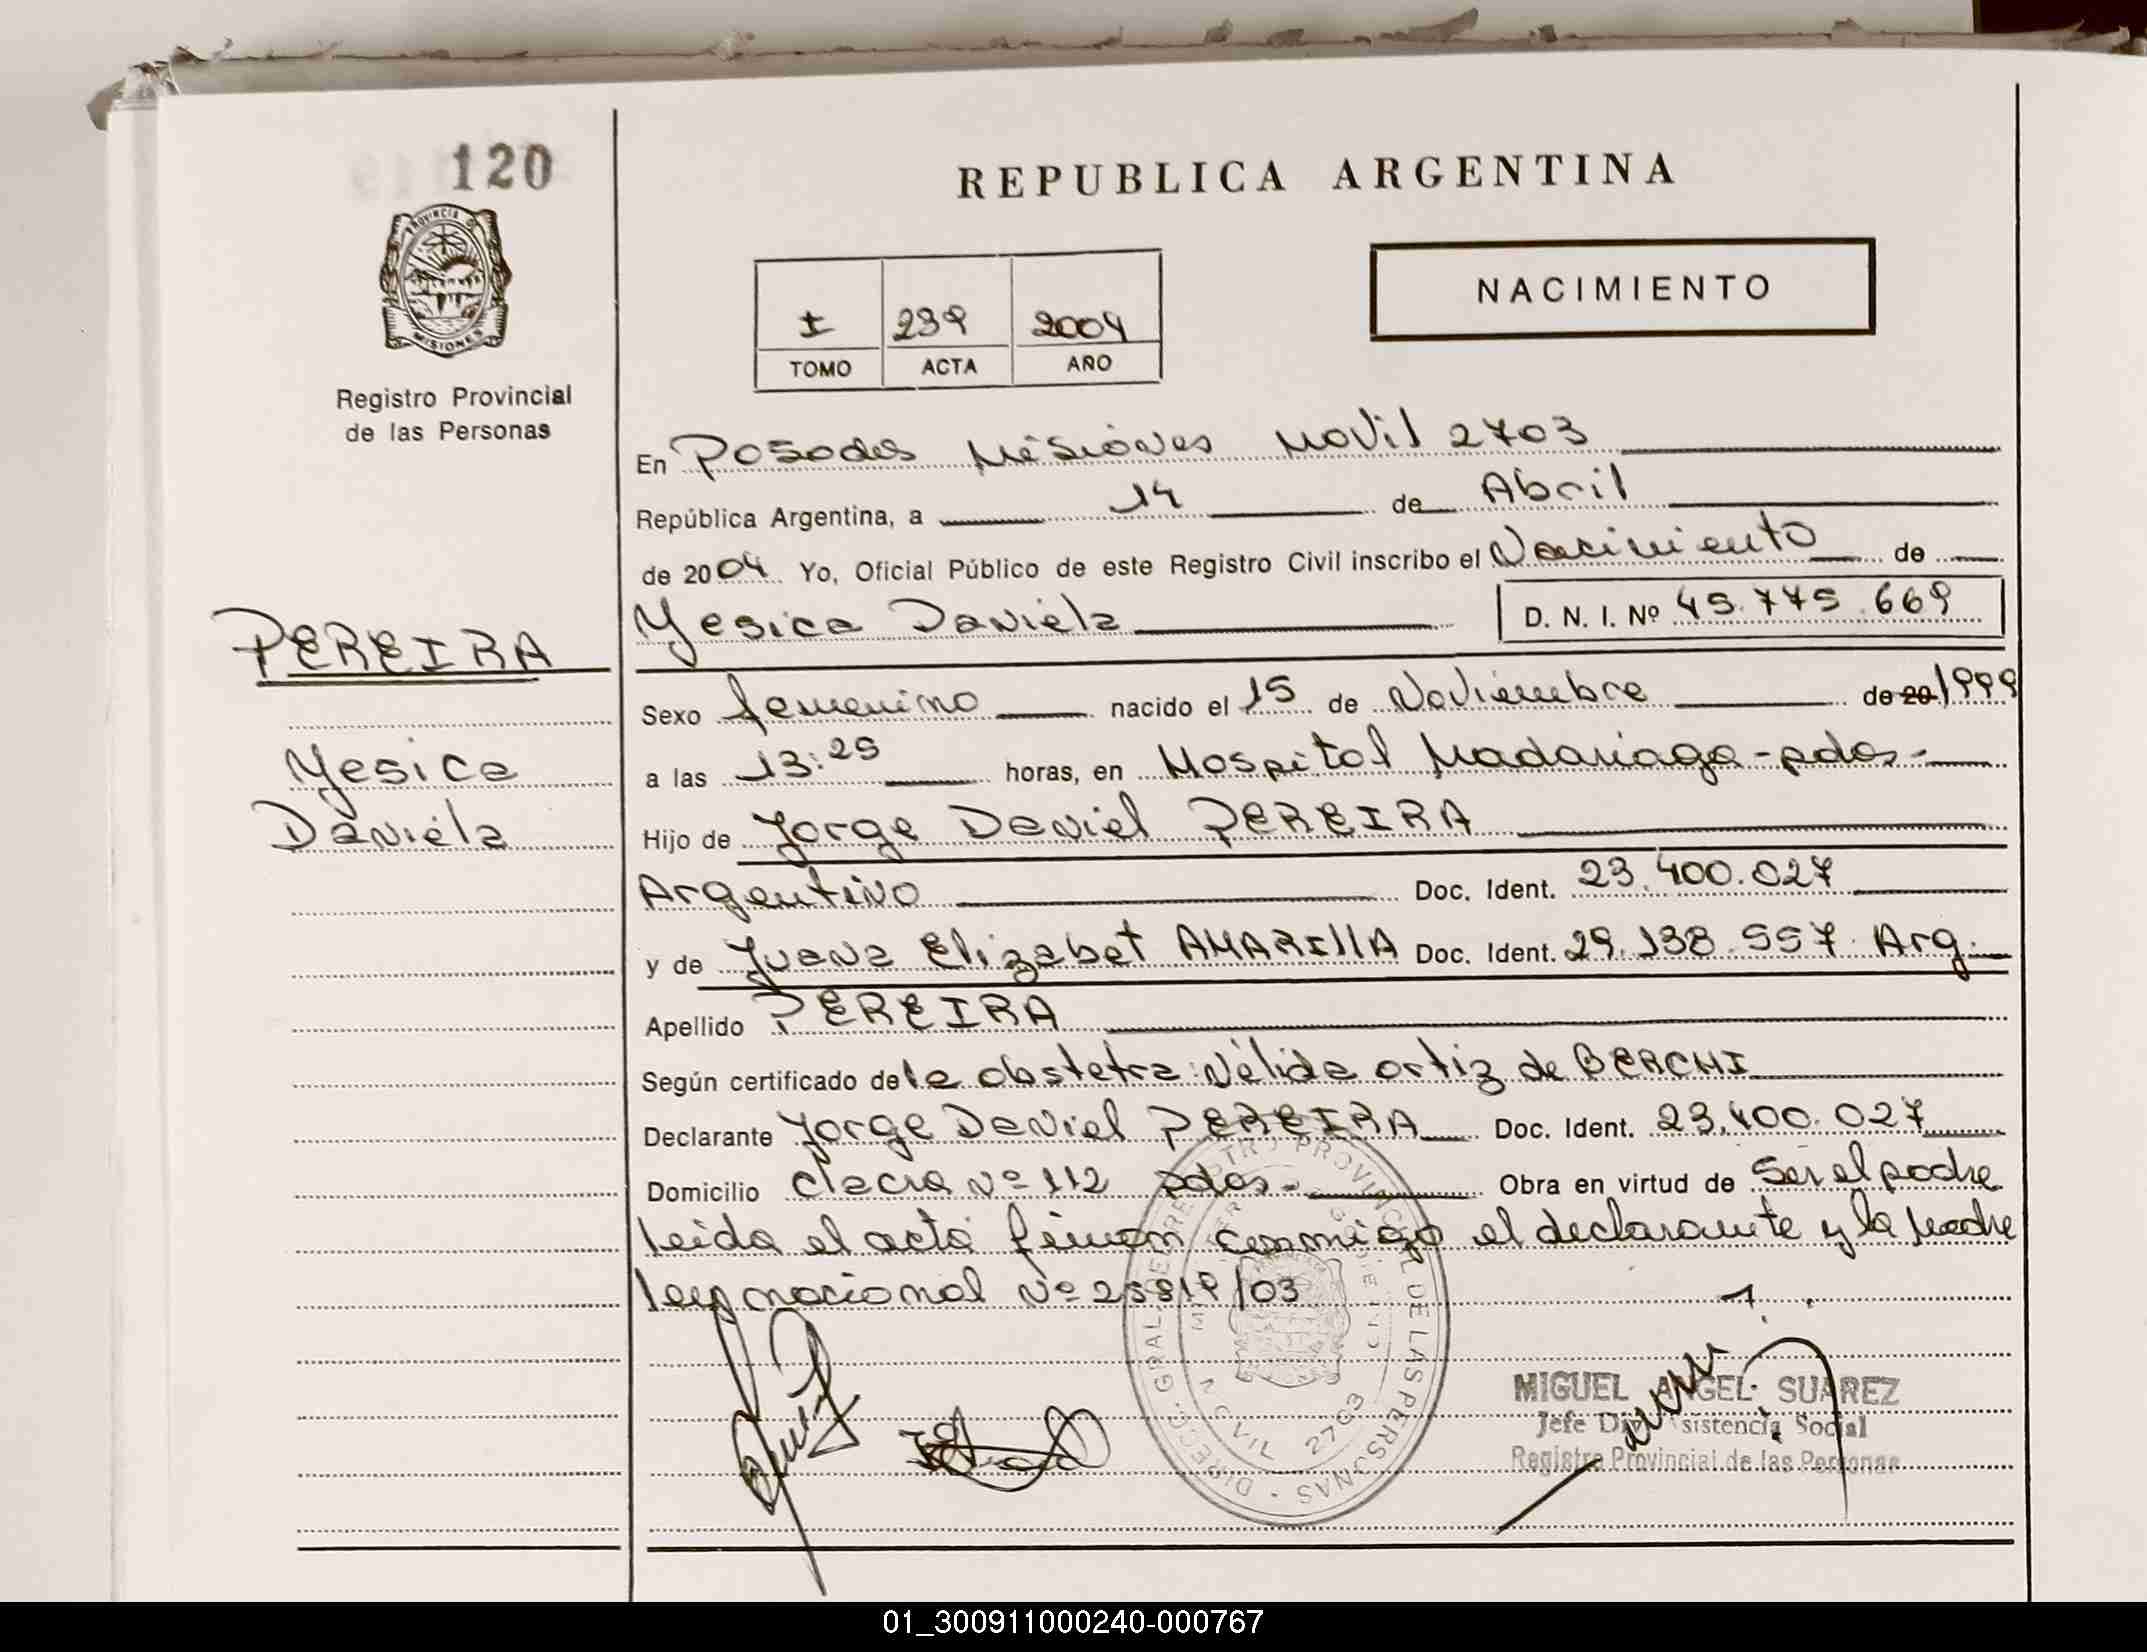 120
PROVINCIA DE
MISIONES
Registro Provincial
de las Personas
REPUBLICA ARGENTINA
NACIMIENTO
I 239 2004
TOMO ACTA AÑO
En Posadas Misiones Movil 2703
República Argentina, a 14 de Abril
de 2004 Yo, Oficial Público de este Registro Civil inscribo el Nacimiento de
Yesica Daniela D. N. I. Nº 45.775.669
PEREIRA
Yesica
Daniela
Sexo femenino nacido el 15 de Noviembre de 20 1999
a las 13:25 horas, en Hospital Madariaga-pdas-
Hijo de Jorge Daniel PEREIRA
Argentino Doc. Ident. 23.400.027
y de Juana Elizabet AMARIllA Doc. Ident. 29.138.557. Arg.
Apellido PEREIRA
Según certificado de la obstetra: Nélida ortiz de BERCHI
Declarante Jorge Daniel PEREIRA Doc. Ident. 23.400.027
Domicilio chacra Nº 112 pdas- Obra en virtud de Ser el padre
leida el acta firman conmigo el declarante y la Madre
ley nacional Nº 25819/03
DIRECC. GRAL. DE REGISTRO PROVINCIAL DE LAS PERSONAS
CIVIL 2703
MIGUEL ANGEL SUAREZ
Jefe Div. Asistencia Social
Registro Provincial de las Personas
01_300911000240-000767